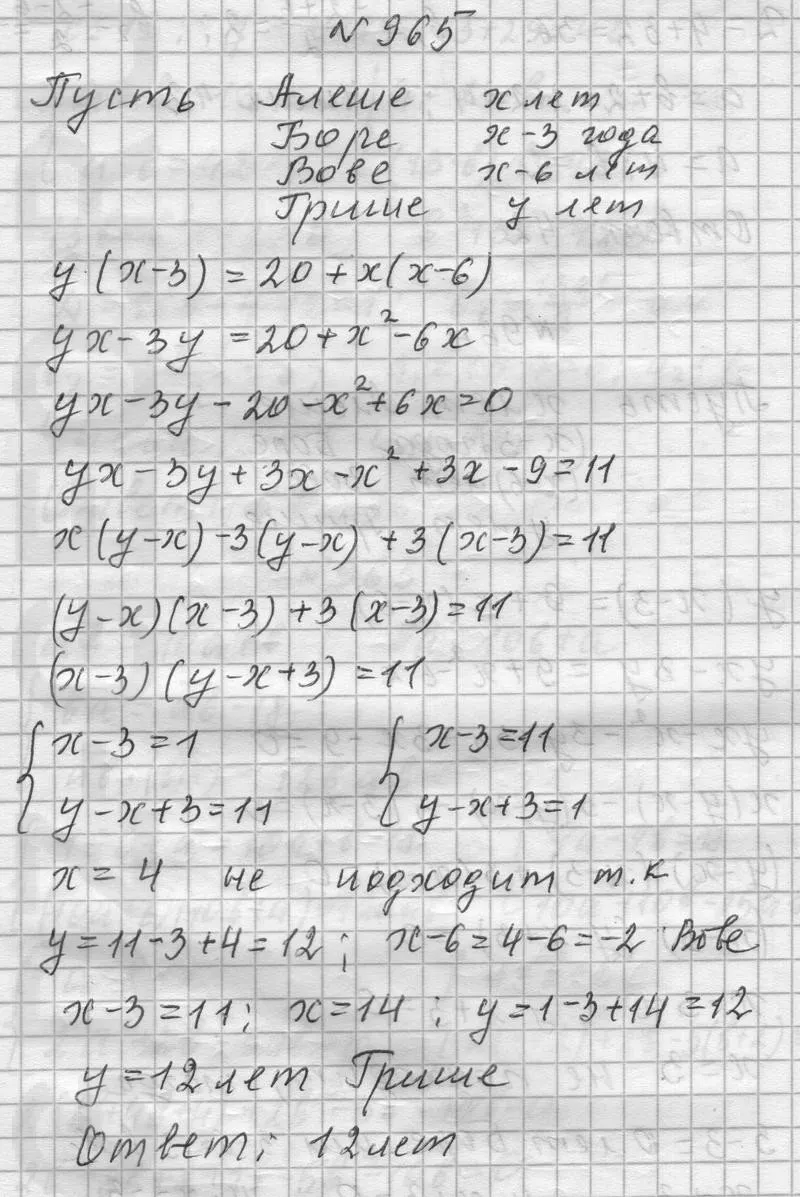 № 965
Пусть Алеше x лет
Боре x-3 года
Вове x-6 лет
Грише y лет
y·(x-3) = 20 + x(x-6)
yx-3y = 20+x²-6x
yx-3y-20-x²+6x=0
yx-3y+3x-x²+3x-9=11
x(y-x)-3(y-x)+3(x-3)=11
(y-x)(x-3)+3(x-3)=11
(x-3)(y-x+3)=11
{ x-3=1 { x-3=11
{ y-x+3=11 { y-x+3=1
x=4 не подходит т.к
y=11-3+4=12; x-6=4-6=-2 Вове
x-3=11; x=14; y=1-3+14=12
y=12 лет Грише
Ответ: 12 лет